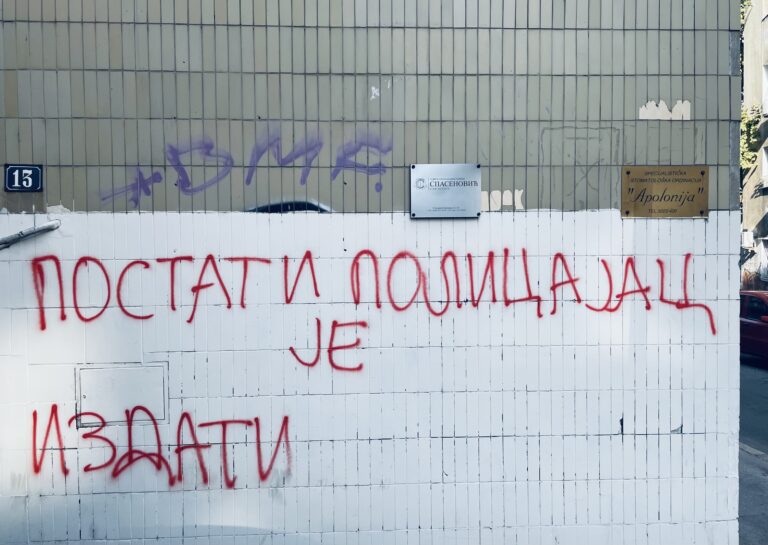 13
СПАСЕНОВИЋ
SPECIJALISTIČKA
STOMATOLOŠKA ORDINACIJA
"Apolonija"
ПОСТАТИ ПОЛИЦАЈАЦ
ЈЕ
ИЗДАТИ